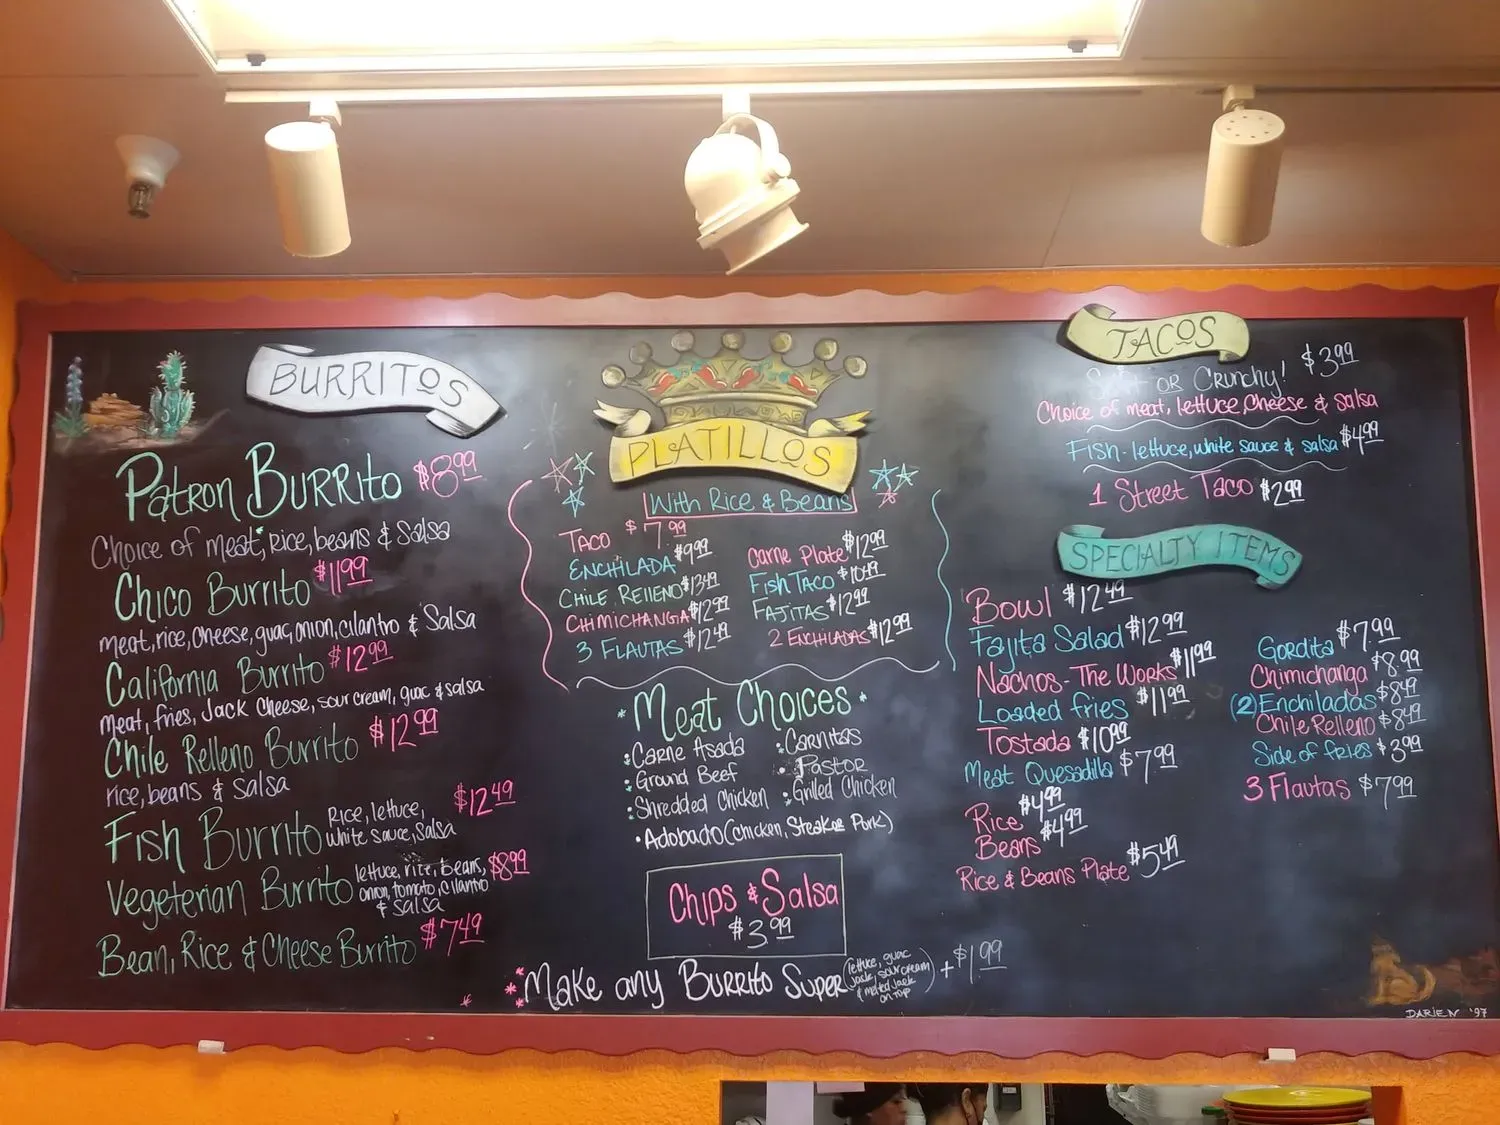 BURRITOS
Patron Burrito $8.99
Choice of meat, rice, beans & Salsa
Chico Burrito $11.99
meat, rice, cheese, guac, onion, cilantro & Salsa
California Burrito $12.99
Meat, fries, Jack Cheese, sour cream, guac & salsa
Chile Relleno Burrito $12.99
rice, beans & Salsa
Fish Burrito Rice, lettuce, $12.49
white sauce, Salsa
Vegeterian Burrito lettuce, rice, beans, $8.99
onion, tomato, cilantro
& salsa
Bean, Rice & Cheese Burrito $7.49
PLATILLOS
With Rice & Beans
Taco $7.99
Enchilada $9.99
Chile Relleno $13.49
Chimichanga $12.99
3 Flautas $12.49
Carne Plate $12.99
Fish Taco $10.49
Fajitas $12.99
2 Enchiladas $12.99
Meat Choices
Carne Asada
Ground Beef
Shredded Chicken
Carnitas
Pastor
Grilled Chicken
Adobado (Chicken, Steak or Pork)
Chips & Salsa
$3.99
Make any Burrito Super (lettuce, guac
Jack, sour cream
& melted Jack
on top) + $1.99
TACOS
Soft or Crunchy! $3.99
Choice of meat, lettuce, Cheese & Salsa
Fish - lettuce, white sauce & salsa $4.99
1 Street Taco $2.99
SPECIALTY ITEMS
Bowl $12.49
Fajita Salad $12.99
Nachos - The Works $11.99
Loaded fries $11.99
Tostada $10.99
Meat Quesadilla $7.99
Rice $4.99
Beans $4.99
Rice & Beans Plate $5.49
Gordita $7.99
Chimichanga $8.99
(2) Enchiladas $8.49
Chile Relleno $8.49
Side of fries $3.99
3 Flautas $7.99
DARIEN '97